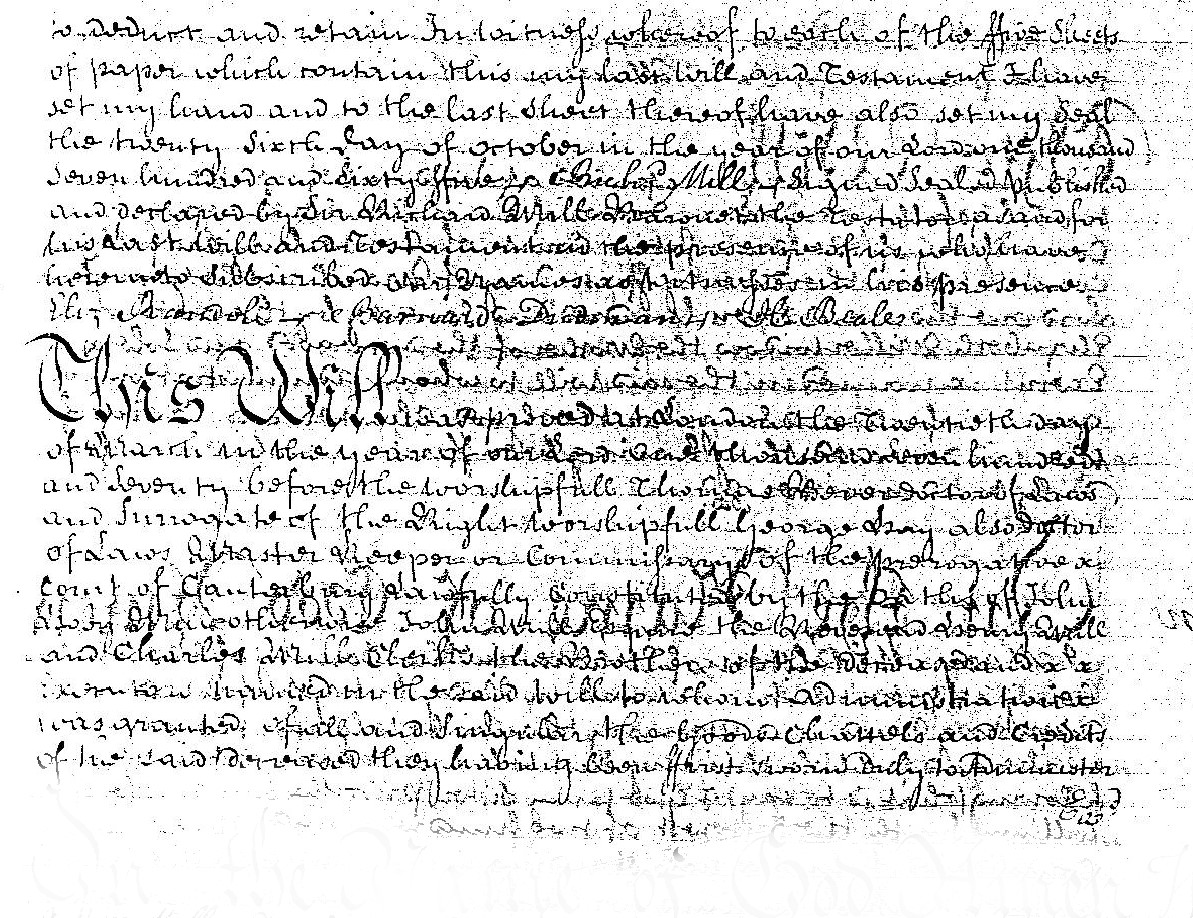 to deduct and retain In witness whereof to each of the ffive Sheets
of paper which contain this my last Will and Testament I have
set my hand and to the last sheet thereof have also set my Seal
the twenty Sixth Day of October in the year of our Lord one thousand
Seven hundred and Sixty ffive Richd Mill Signed Sealed published
and declared by Sir Richard Mill Baronet the Testator as and for
his last Will and Testament in the presence of us who have
hereunto Subscribed our Names as Witnesses in his presence
This Will
was proved at London the Twentieth day
of March in the year of our Lord One thousand Seven hundred
and Seventy before the Worshipfull Thomas Bever doctor of Laws
and Surrogate of the Right Worshipfull George Hay also doctor
of Laws Master Keeper or Commissary of the prerogative
Court of Canterbury Lawfully Constituted by the Oaths of John
John Mill the Reverend Henry Mill
and Charles Mill Clerks the Brothers of the deceased and
Executors named in the said Will to whom Administration
was granted of all and Singular the Goods Chattels and Credits
of the said deceased they having been ffirst Sworn Duly to Administer